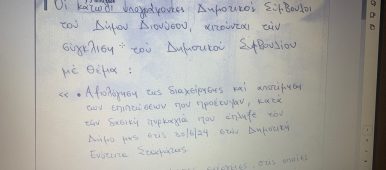 Οι κάτωθι υπογράφοντες Δημοτικοί Σύμβουλοι
του Δήμου Διονύσου, αιτούνται την
σύγκλιση του Δημοτικού Συμβουλίου
με θέμα:
« • Αξιολόγηση της διαχείρησης και αποτίμηση
των επιπτώσεων που προέκυψαν, κατά
την δασική πυρκαγιά που έπληξε τον
Δήμο μας στις 30/6/24 στην Δημοτική
Ενότητα Σταμάτας
στις οποίες